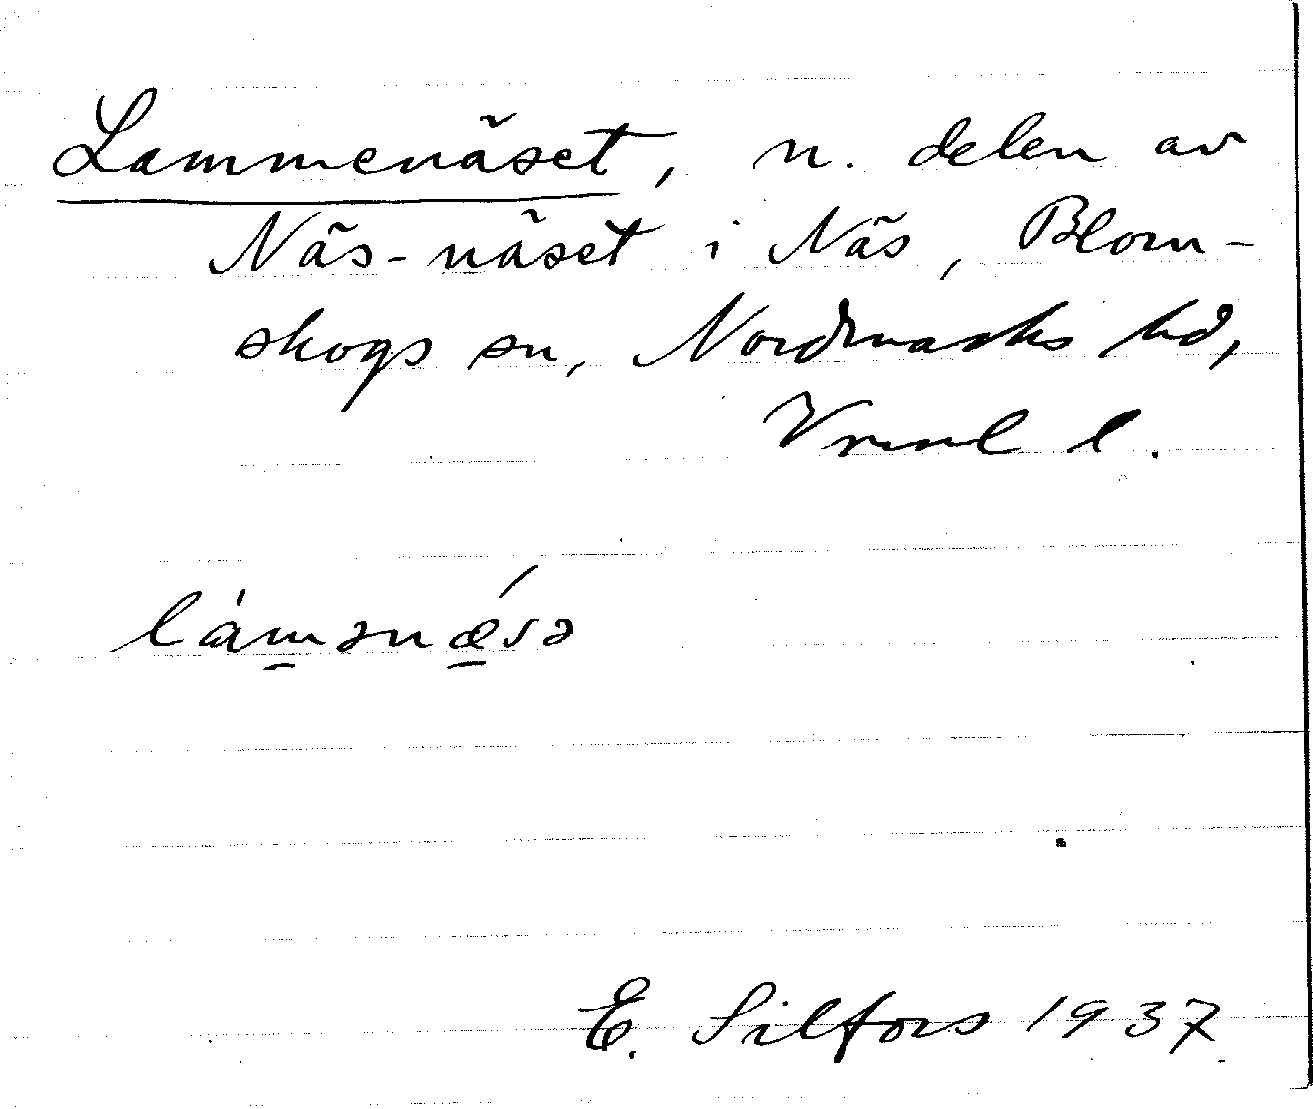 Lammenäset, n. delen av
Näs-näset i Näs, Blom-
skogs sn, Nordmarks hd,
Vrml l.
làm̱ənǽ̱sə
E. Silfors 1937